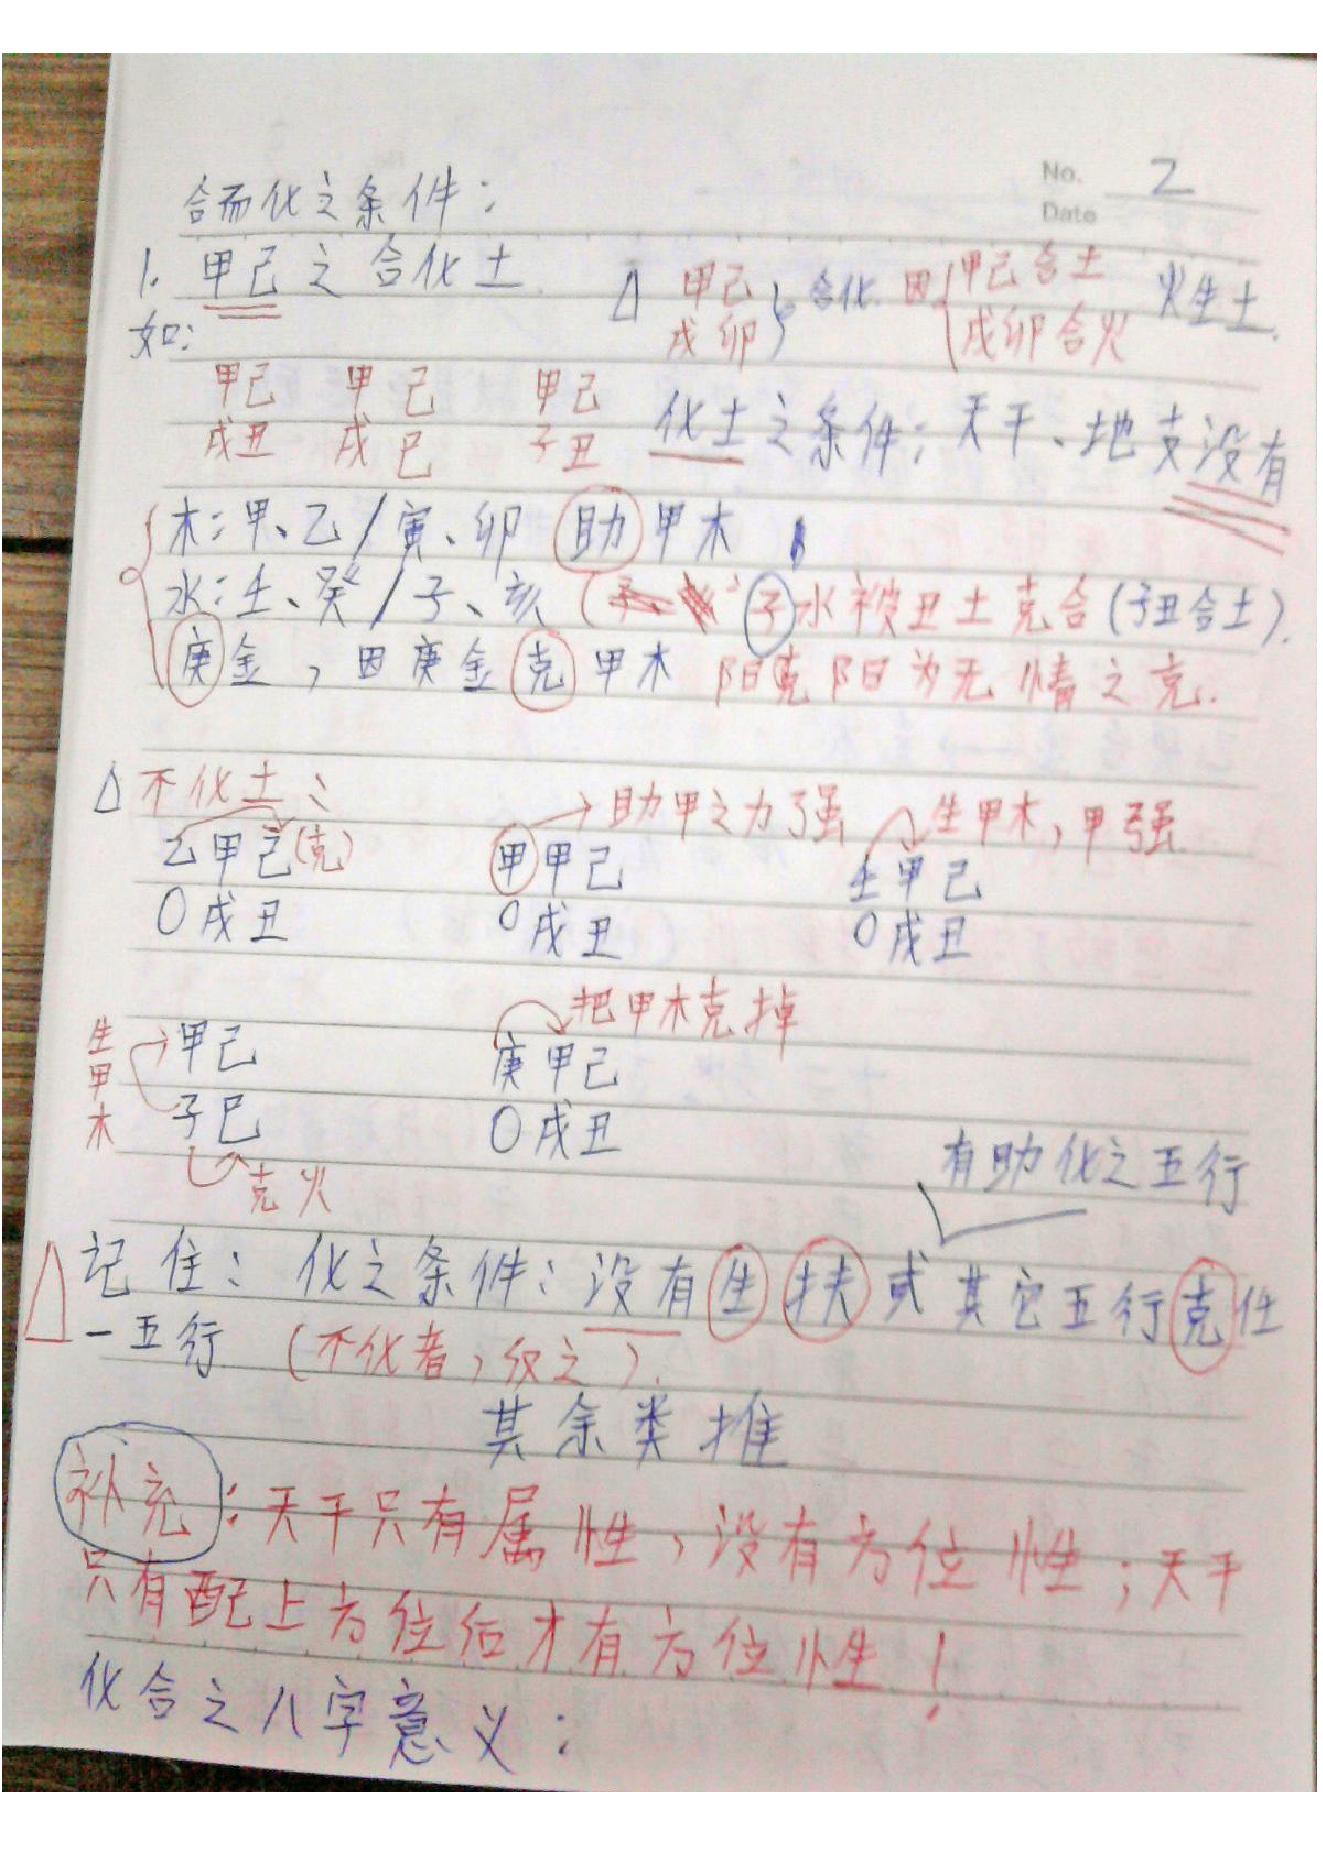 No. 2
Date
合而化之条件：
1. 甲己之合化土
△ 甲己 戌卯 } 合化 因 { 甲己合土 戌卯合火 火生土.
如：
甲己 甲己 甲己
戌丑 戌巳 子丑
化土之条件；天干、地支没有
木：甲、乙/寅、卯 助甲木
水：壬、癸/子、亥 (子水被丑土克合(子丑合土).
庚金，因庚金克甲木 阳克阳为无情之克.
△ 不化土：
→助甲之力强 生甲木，甲强
乙甲己(克) 甲甲己 壬甲己
〇戌丑 〇戌丑 〇戌丑
把甲木克掉
生甲木 甲己 庚甲己
子巳 〇戌丑
克火
有助化之五行
△ 记住：化之条件：没有生扶或其它五行克任
一五行 (不化者，反之).
其余类推
补充：天干只有属性，没有方位性；天干
只有配上方位后才有方位性！
化合之八字意义：